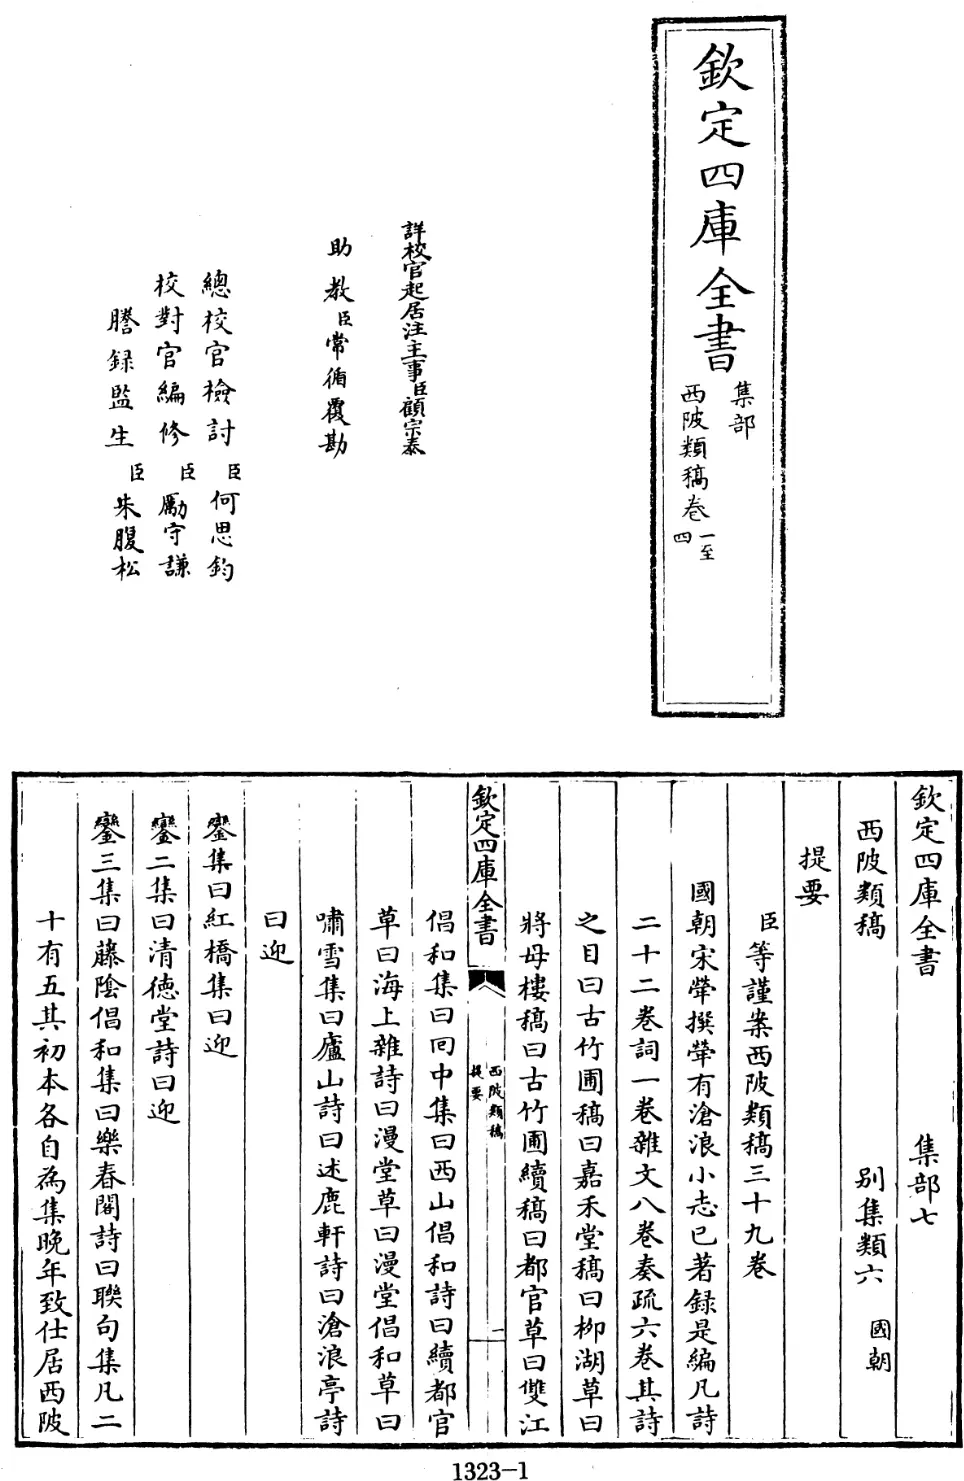 欽定四庫全書
集部
西陂類稿卷一至四
詳校官起居注主事臣顧宗泰
助教臣常循覆勘
總校官檢討臣何思鈞
校對官編修臣勵守謙
謄録監生臣朱腹松
欽定四庫全書 集部七
西陂類稿 别集類六 國朝
提要
臣等謹案西陂類稿三十九卷
國朝宋犖撰犖有滄浪小志已著録是編凡詩
二十二卷詞一卷雜文八卷奏疏六卷其詩
之目曰古竹圃稿曰嘉禾堂稿曰柳湖草曰
將母樓稿曰古竹圃續稿曰都官草曰雙江
欽定四庫全書 西陂類稿 提要 一
倡和集曰回中集曰西山倡和詩曰續都官
草曰海上雜詩曰漫堂草曰漫堂倡和草曰
嘯雪集曰廬山詩曰述鹿軒詩曰滄浪亭詩
曰迎
鑾集曰紅橋集曰迎
鑾二集曰清德堂詩曰迎
鑾三集曰藤陰倡和集曰樂春閣詩曰聨句集凡二
十有五其初本各自為集晚年致仕居西陂
1323-1